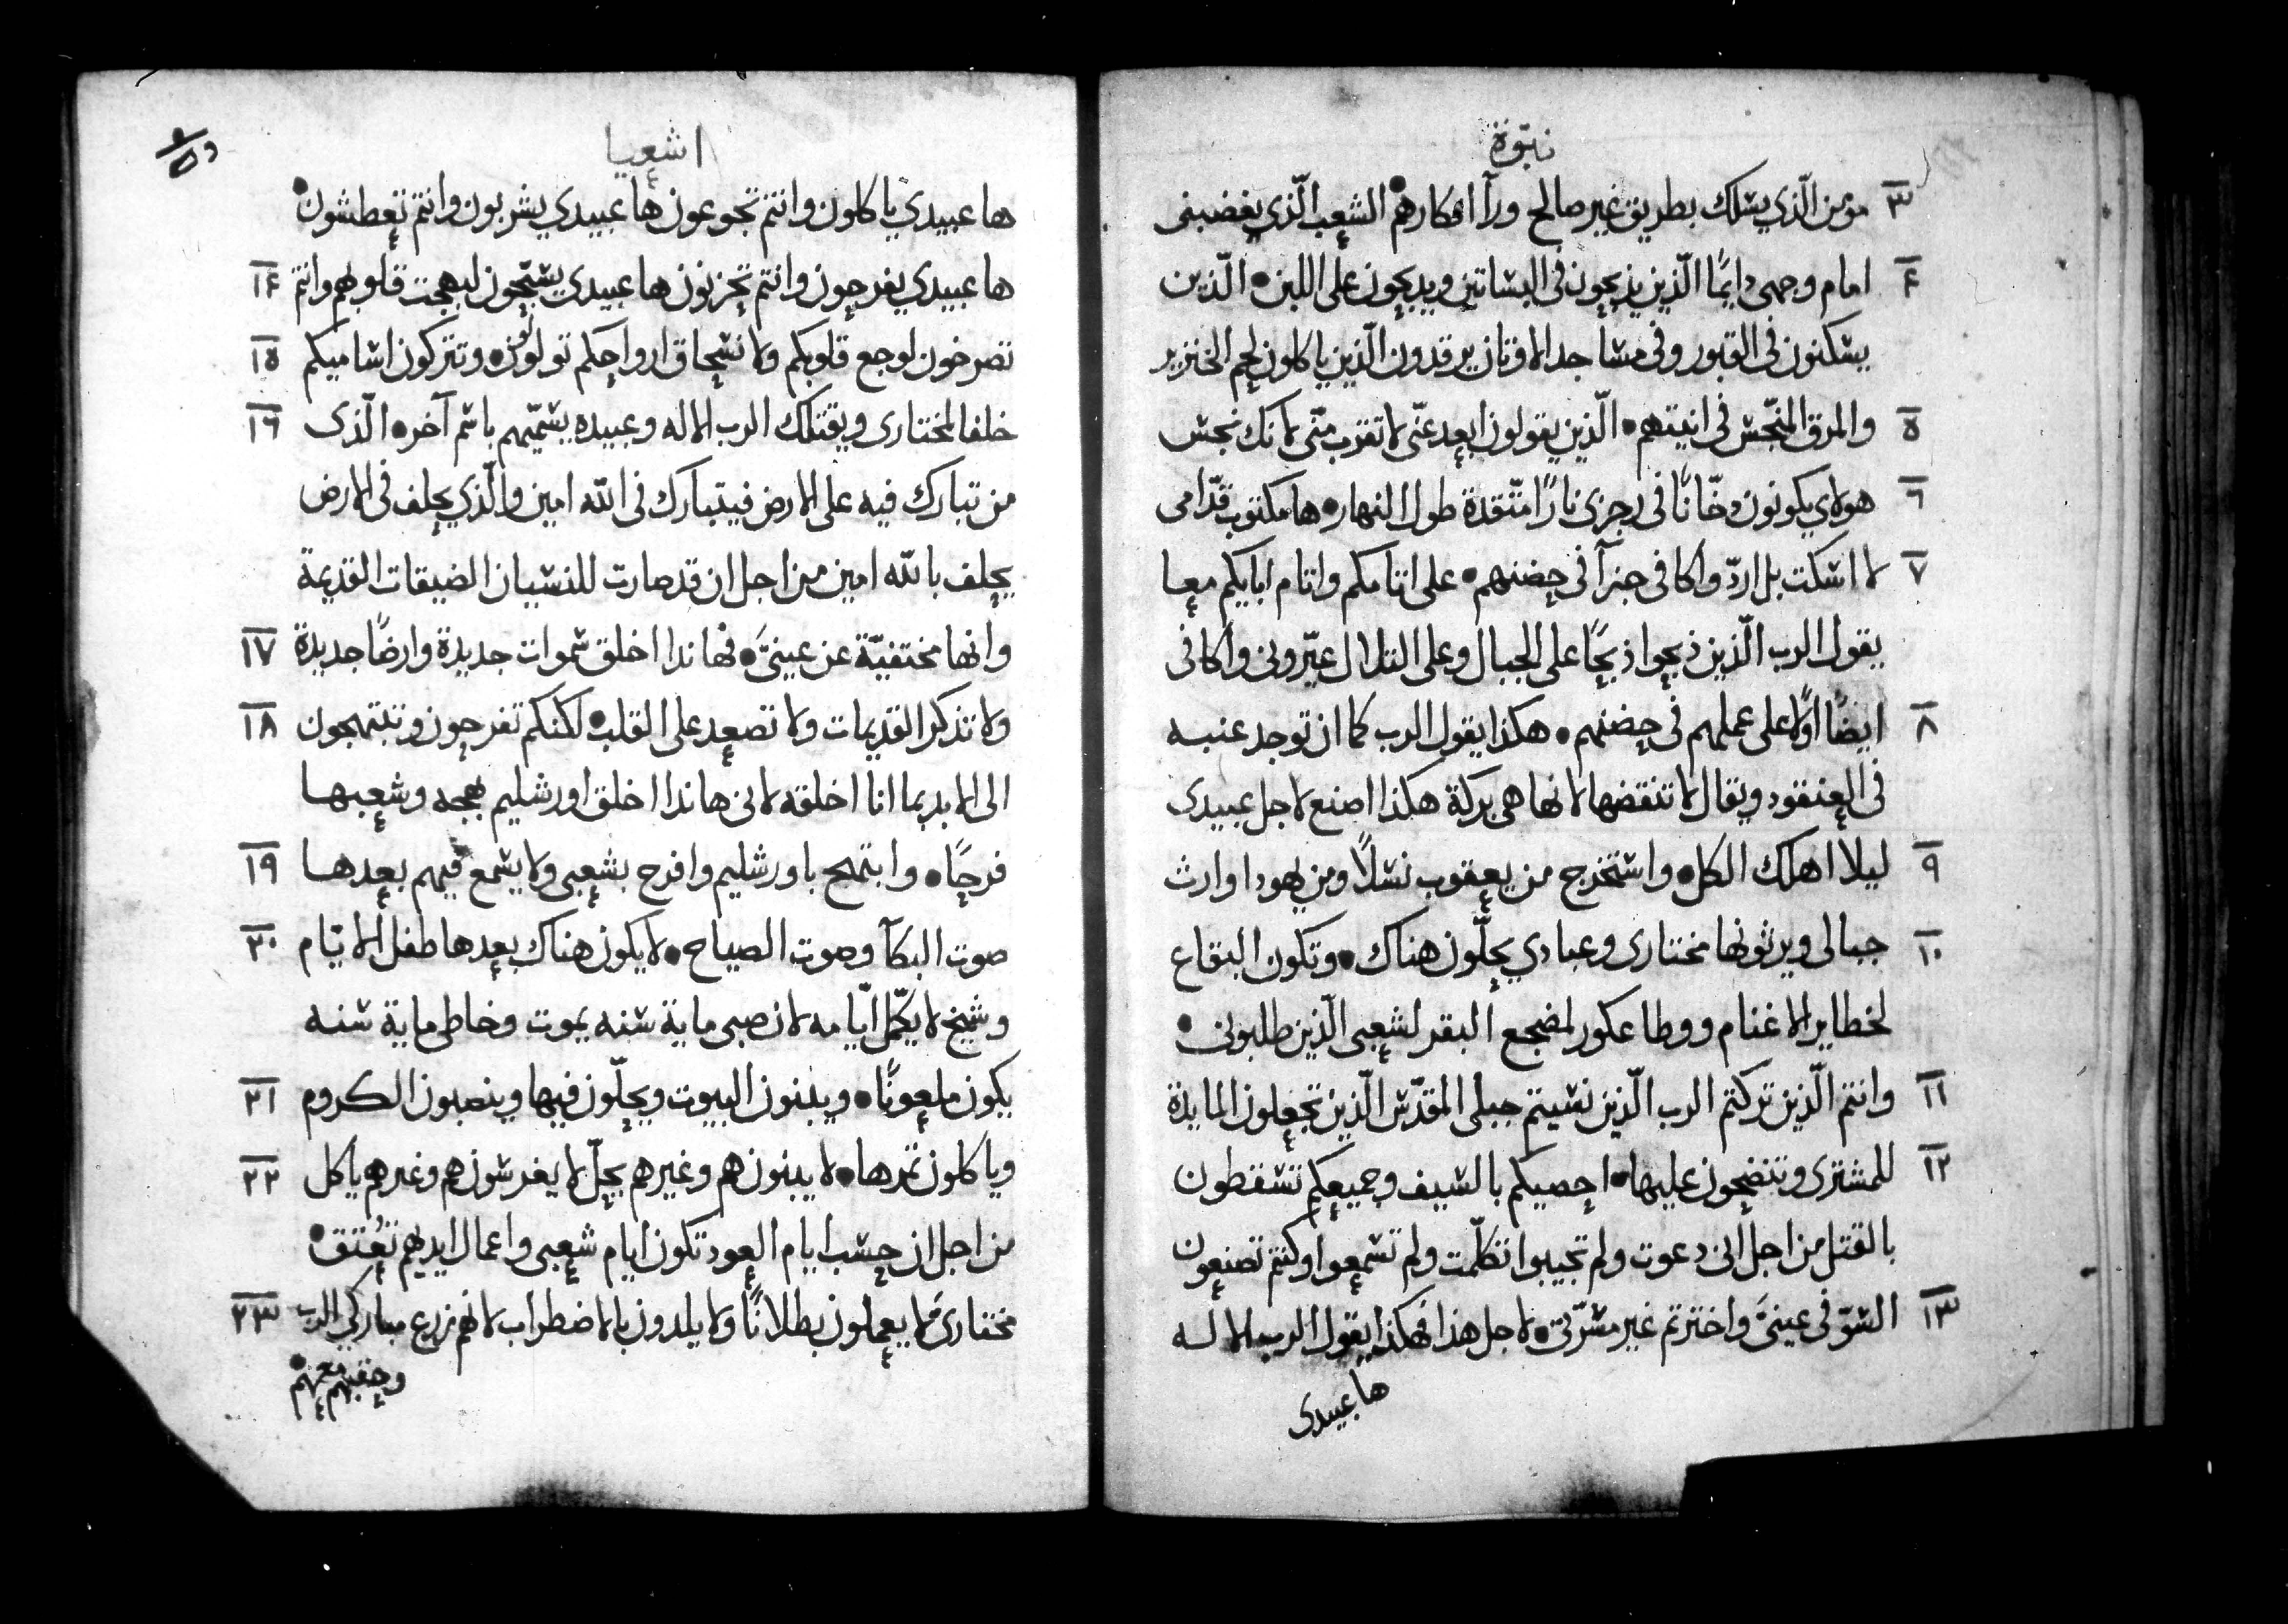 نبوّة
٣ مؤمن الّذي يسلك بطريق غير صالح ورآ افكارهم • الشعب الّذي يغضبنى
۴ امام وجهى دايمًا الّذين يذبحون فى البساتين ويدبحون على اللبن • الّذين
يسكنون فى القبور وفى مساجد الاوتان يرقدون الّذين ياكلون لحم الخنزير
٥ والمرق المنجّس فى انيتهم • الّذين يقولون ابعد عنّى لا تقرب منّى لانك نجس
٦ هولاي يكونون دخّانًا فى رجزى نارًا متّقدة طول النهار • ها مكتوب قدّامى
٧ لا اسكت بل اردّ واكافى جزآ فى حضنهم • على اتامكم واتام ابايكم معا
يقول الرب الّذين ذبحوا ذبحًا على الجبال وعلى التلال عيّرونى واكافى
٨ ايضًا اوّلا على عملهم فى حضنهم • هكذا يقول الرب كما ان توجد عنبه
فى العنقود ويقال لا تنقضها لانها هى بركة هكذا اصنع لاجل عبيدى
٩ ليلا اهلك الكل • واستخرج من يعقوب نسلاً ومن يهودا وارث
١٠ جبالى ويرثونها مختارى وعبادي يحلّون هناك • وتكون البقاع
لحظاير الاغنام ووطا عكور لمضجع البقر لشعبى الّذين طلبونى •
١١ وانتم الّذين تركتم الرب الّذين نسيتم جبلى المقدّس الّذين تجعلون المايدة
١٢ للمشترى وتنضحون عليها • احصيكم بالسيف وجميعكم تسقطون
بالقتل من اجل انى دعوت ولم تجيبوا تكلّمت ولم تسمعوا وكنتم تصنعون
١٣ السّو فى عينىَّ واخترتم غير مسرّتى • لاجل هذا فهكذا يقول الرب الاله
ها عبيدى
اشعيا
ها عبيدي ياكلون وانتم تجوعون ها عبيدي يشربون وانتم تعطشون •
١۴ ها عبيدي يفرحون وانتم تحزنون ها عبيدي يسبّحون لبهجت قلوبهم وانتم
١٥ تصرخون لوجع قلوبكم ولانسحاق ارواحكم تولولون • وتتركون اساميكم
١٦ خلفا لمختارى ويقتلك الرب الاله وعبيده يسمّيهم باسم آخر • الّذى
من تبارك فيه على الارض فيتبارك فى اللّه امين والّذي يحلف فى الارض
يحلف باللّه امين من اجل ان قد صارت للنسيان الضيقات القديمة
١٧ وانها مختفيّة عن عينىَّ • فهاندا اخلق سموات جديدة وارضًا جديدة
١٨ ولا تذكر القديمات ولا تصعد على القلب • لكنكم تفرحون وتبتهجون
الى الابد بما انا اخلقه لانى هاندا اخلق اورشليم بهجه وشعبها
١٩ فرحًا • وابتهج باورشليم وافرح بشعبى ولا يسمع فيهم بعدها
٢٠ صوت البكآ وصوت الصياح • لا يكون هناك بعدها طفل الايّام
وشيخ لا يكمّل ايّامه لان صبى ماية سنه يموت وخاطى ماية سنه
٢١ يكون ملعونًا • ويبنون البيوت ويحلّون فيها وينصبون الكروم
٢٢ وياكلون تمرها • لا يبنون هم وغيرهم يحلّ لا يغرسون هم وغيرهم ياكل
من اجل ان حسب ايام العود تكون ايام شعبى واعمال ايديهم تعُتق •
٢٣ مختارىَّ لا يعملون بطلانًا ولا يلدون بالاضطراب لانهم زرع مباركي الرب
وحفبهم معهم •